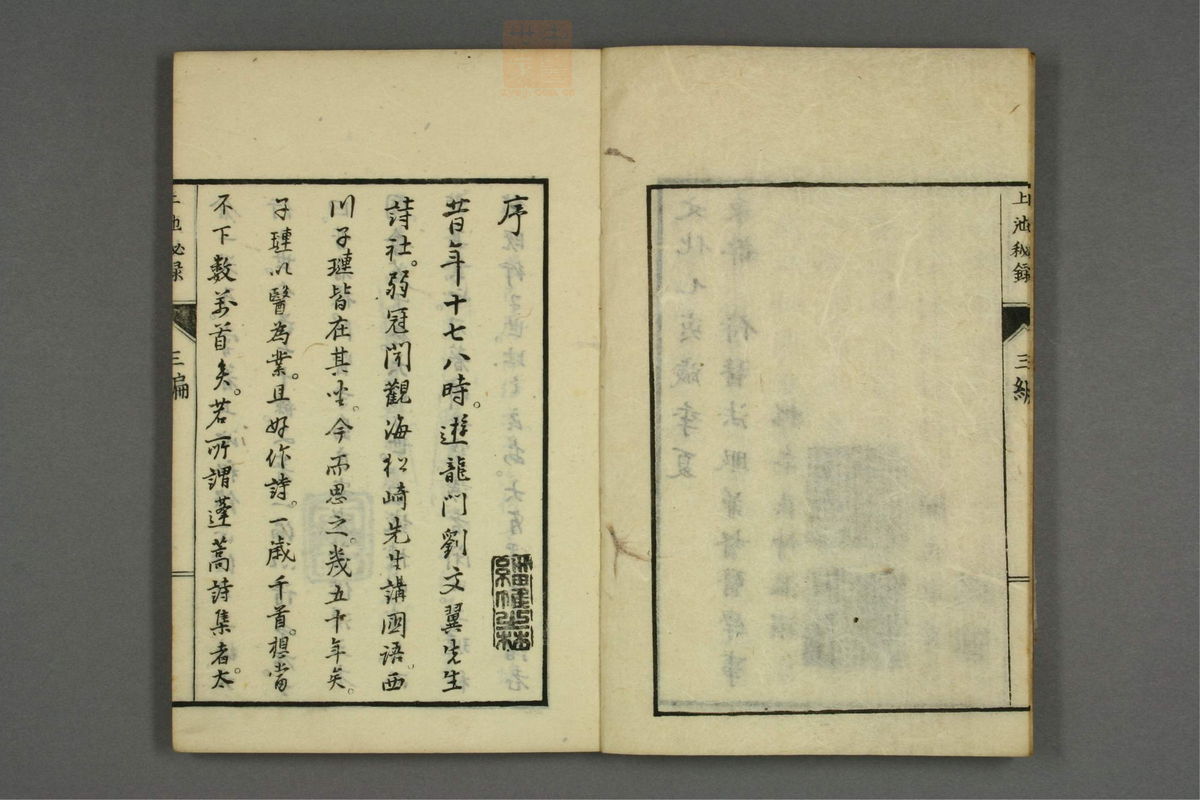 上池秘録
三編
序
昔年十七八時。遊龍門劉文翼先生
詩社。弱冠聞觀海松崎先生講國語。西
川子璉皆在其坐。今而思之。幾五十年矣。
子璉以醫為業。且好作詩。一歲千首。想當
不下數萬首矣。若所謂蓬蒿詩集者。太
上池秘録
三編